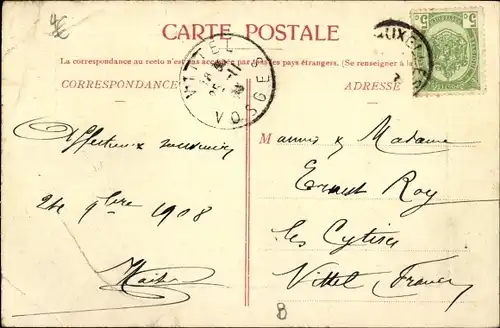 CARTE POSTALE
La correspondance au recto n'est pas acceptée par tous les pays étrangers. (Se renseigner à la
CORRESPONDANCE
ADRESSE
VITTEL
VOSGES
5c 5c
Affectueux souvenirs
24 9bre 1908
M
Madame
Ernest Roy
les Cytises
Vittel, France
B